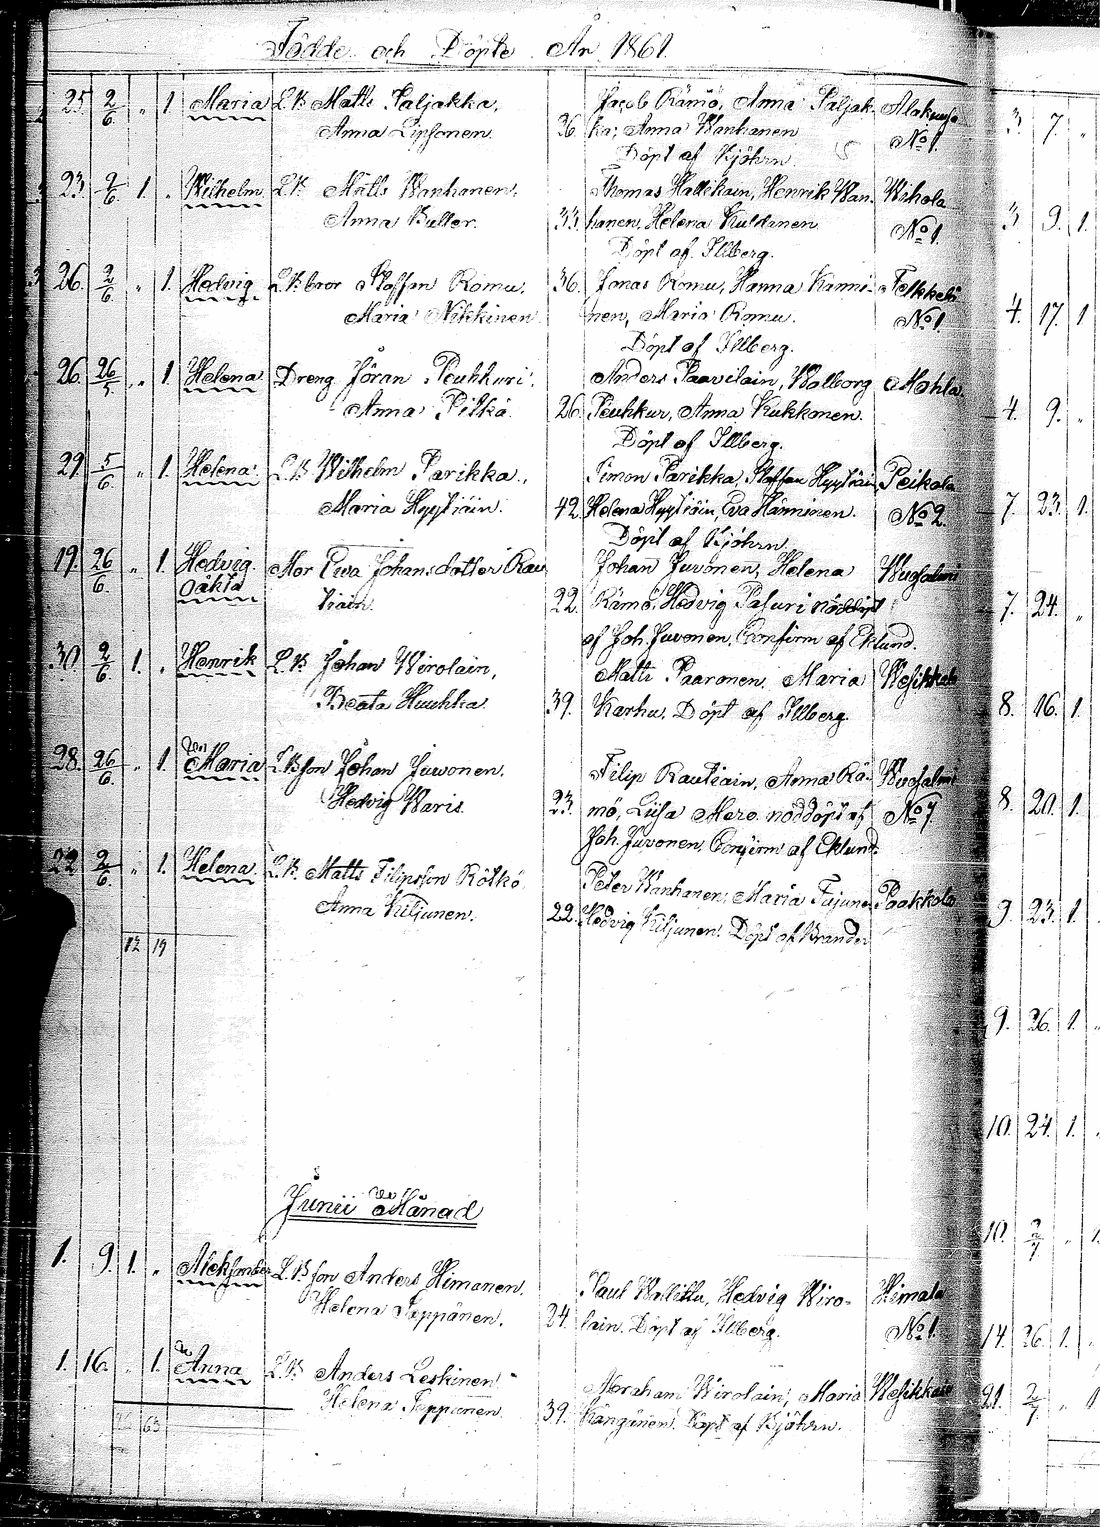 Födde och Döpte År 1861.
25. 2/6 " 1. Maria L.B. Matts Paljakka, Jacob Rämö, Anna Paljak-
Anna Lipsonen. 36. ka; Anna Wanhanen No 1.
Döpt af Björhn.
23. 2/6 1. " Wilhelm L.B. Matts Wanhanen. Thomas Hallikain, Henrik Wan-
Anna Butter. 33. hanen, Helena Kuldanen. No 1.
Döpt af Illberg.
26. 2/6 " 1. Hedvig L.B. bror Staffan Romu, 36. Jonas Romu, Hanna Kanni- Telkkelä
Maria Nikkinen nen, Maria Romu. No 1.
Döpt af Illberg.
26. 26/5 " 1. Helena Dreng Jöran Peuhkuri, Anders Paavilain, Walborg Mohla.
Anna Pitkä. 26. Peuhkur, Anna Kukkonen.
Döpt af Illberg.
29. 5/6 " 1. Helena L.B. Wilhelm Parikka, Simon Parikka, Staffan Hyytiäin, Peikola
Maria Hyytiäin. 42. Helena Hyytiäin, Eva Hänninen. No 2.
Döpt af Björhn.
19. 26/6 " 1. Hedvig. Mor Ewa Johansdotter Rau Johan Juvonen, Helena Wuosalmi
Oäkta tiain. 22. Rämö, Hedvig Pasuri nöddöpt
af Joh. Juvonen. Confirm af Eklund.
30. 2/6 1. " Henrik L.B. Johan Wirolain, Matts Paaronen, Maria Wesikkala
Beata Huuhka. 39. Karhu. Döpt af Illberg.
28. 26/6 " 1. Maria L.Bson Johan Juwonen. Filip Rautiain, Anna Rä- Wuosalmi
Hedvig Waris. 23. mö, Liisa Mero. nöddöpt af No 7.
Joh. Juvonen. Confirm af Eklund.
22 2/6 " 1. Helena. L.B. Matts Filipsson Rötkö Peter Wanhanen, Maria Paakkola
Anna Kiljunen. 22. Hedvig Kiljunen. Döpt af Brander
12 19
Junii Månad
1. 9. 1. " L.B. son Anders Himanen. Paul Wallittu, Hedvig Wiro- Heimala
Helena Seppänen. 24. lain. Döpt af Illberg. No 1.
1. 16. " 1. Anna L.B. Anders Leskinen Abraham Wirolain, Maria
Helena 39. Kangänen. Döpt af Björhn.
63
3. 7. "
3. 9. 1.
4. 17. 1
4. 9. "
7. 23. 1.
7. 24. "
8. 16. 1.
8. 20. 1.
9. 23. 1.
9. 26. 1.
10. 24. 1.
10. 2/7 "
14. 26. 1.
21. 2/7 "